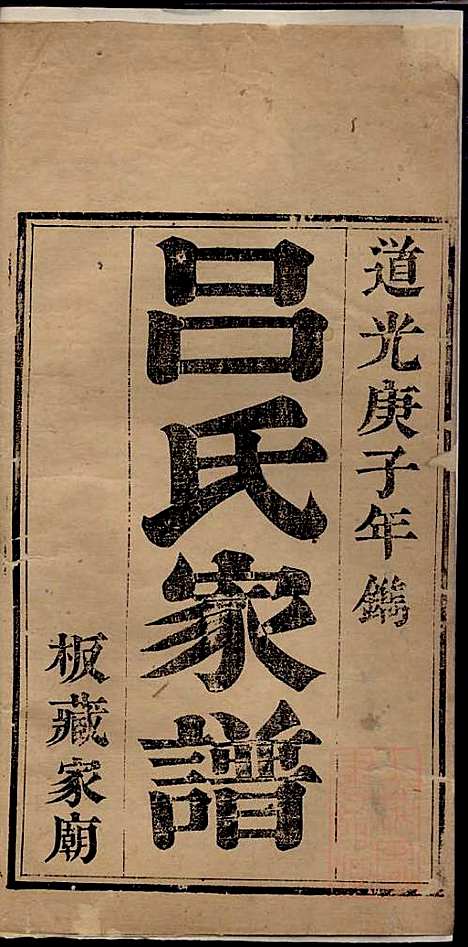 道光庚子年鐫
呂氏家譜
板藏家廟